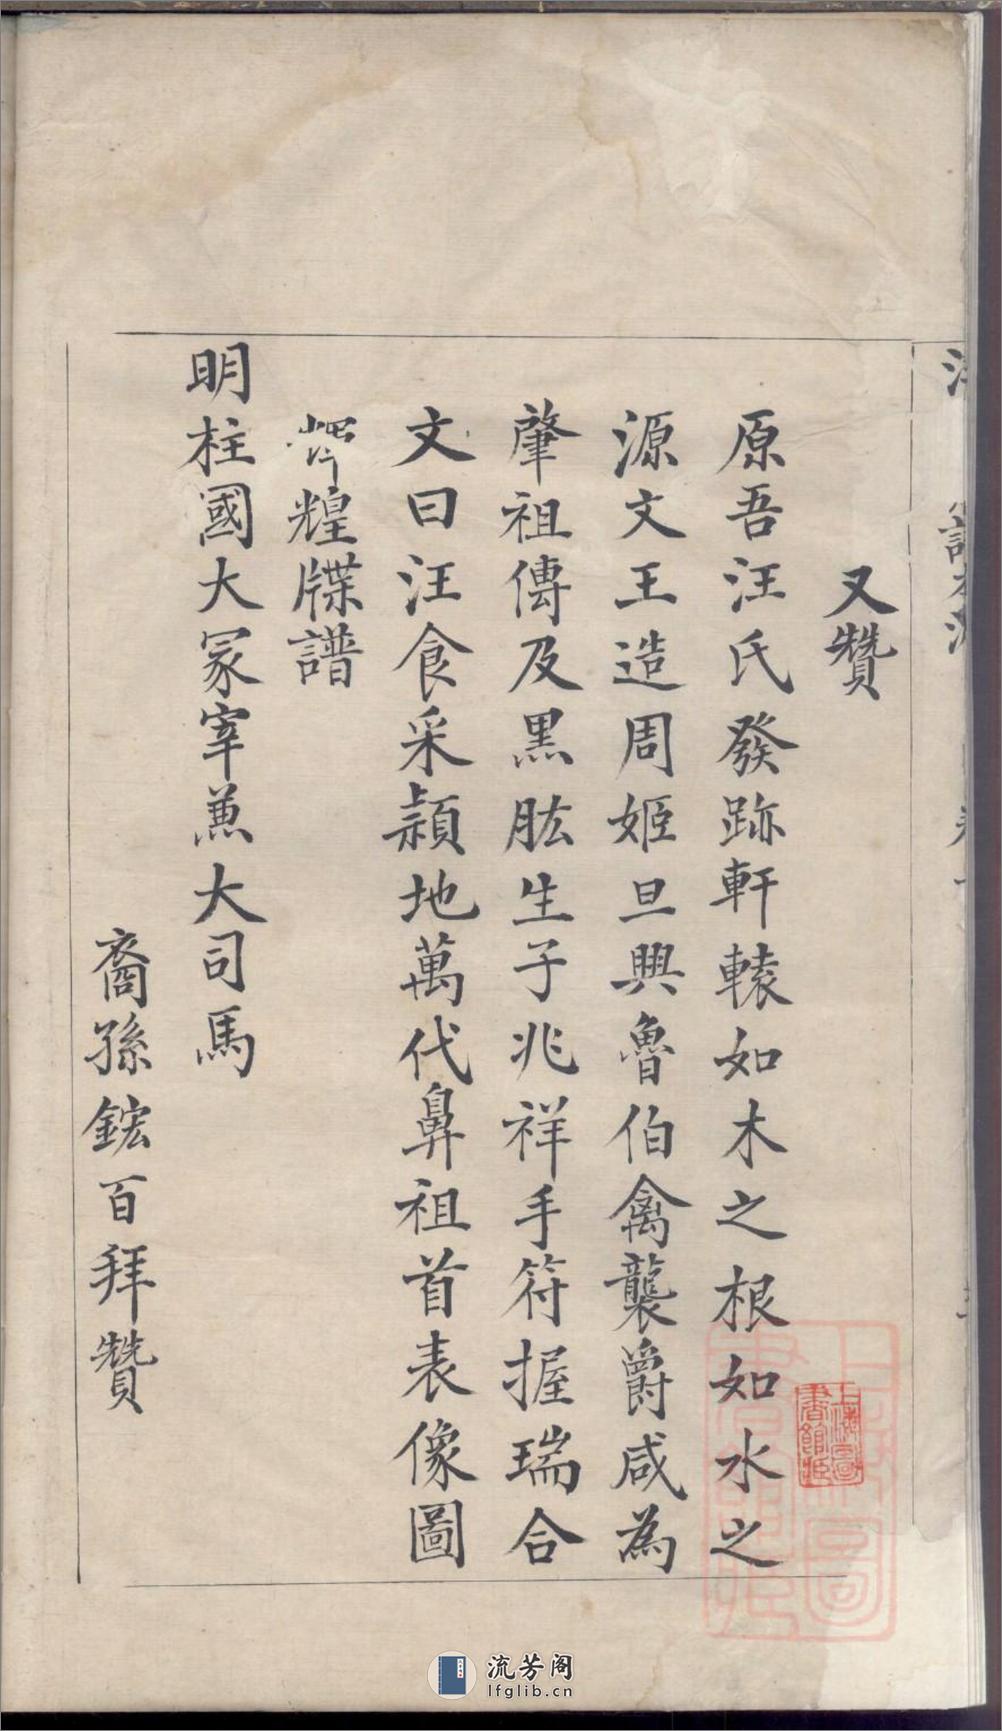 又贊
原吾汪氏發跡軒轅如木之根如水之
源文王造周姬旦興魯伯禽襲爵咸為
肇祖傳及黑肱生子兆祥手符握瑞合
文曰汪食采潁地萬代鼻祖首表像圖
輝煌牒譜
明柱國大冢宰兼大司馬
裔孫鋐百拜贊
上海圖書館藏
上海圖書館藏
流芳阁
lfglib.cn